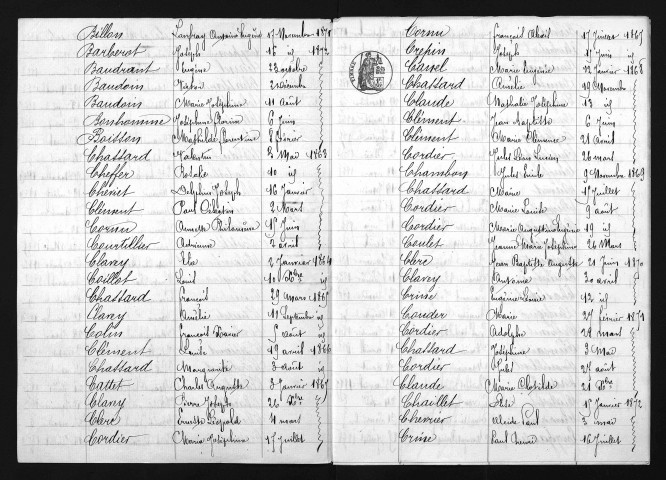 Billon Constant 17 Novembre 1870
Barberot Joseph 15 id 1872
Baudrant Eugène 23 octobre
Baudoin Victor 2 décembre
Baudoin Marie Joséphine 11 Août
Bonhomme Joséphine Florine 6 Juin
Boisson Mathilde Florentine 8 février
Chassard Valentin 3 Mai 1863
Cheffer Rosalie 10 id
Chenet Delphin Joseph 16 Janvier
Clément Paul 2 Mars
Cornu Annette Philomène 15 Juin
Courtellier Adrienne 2 avril
Clavey Elie 2 Janvier 1864
Coillot Louis 10 Xbre id
Chassard François 29 Mars 1865
Clavey Amélie 11 Septembre id
Colin François Xavier 5 août id
Clément Louise 19 avril 1866
Chassard Marguerite 3 août id
Cattet Charles Auguste 3 Janvier 1867
Clavey Pierre Joseph 26 Xbre
Clerc Ernest Léopold 4 mars
Cordier Marie Joséphine 17 Juillet
Cornu François 17 Janvier 1867
Crépin Joseph 15 Juin id
Cassel Marie Eugénie 12 Janvier 1868
Chassard Amélie 10 Novembre
Claude Mathilde Joséphine 13 id
Clément Jean Baptiste 6 Juin
Clément Marie Clémence 21 Avril
Cordier Jules 26 mars
Chambon Jules Emile 9 Novembre 1869
Chassard Marie 15 Juillet
Cordier Marie Louise 9 août
Cordier Marie Augustine 19 id
Coulet Jeanne Marie Joséphine 26 Mars
Clerc Jean Baptiste Auguste 21 Juin 1870
Clavey Antoine 30 avril
Crine Eugène Louis 12 id
Couder Marie 27 février 1871
Cordier Adolphe 28 mars
Chassard Joséphine 3 Mai
Cordier Jules 24 août
Claude Marie Clotilde 21 Xbre
Chaillet 15 Janvier 1872
Chevrier Alcide Paul 3 mai
Crine Paul 16 Juillet